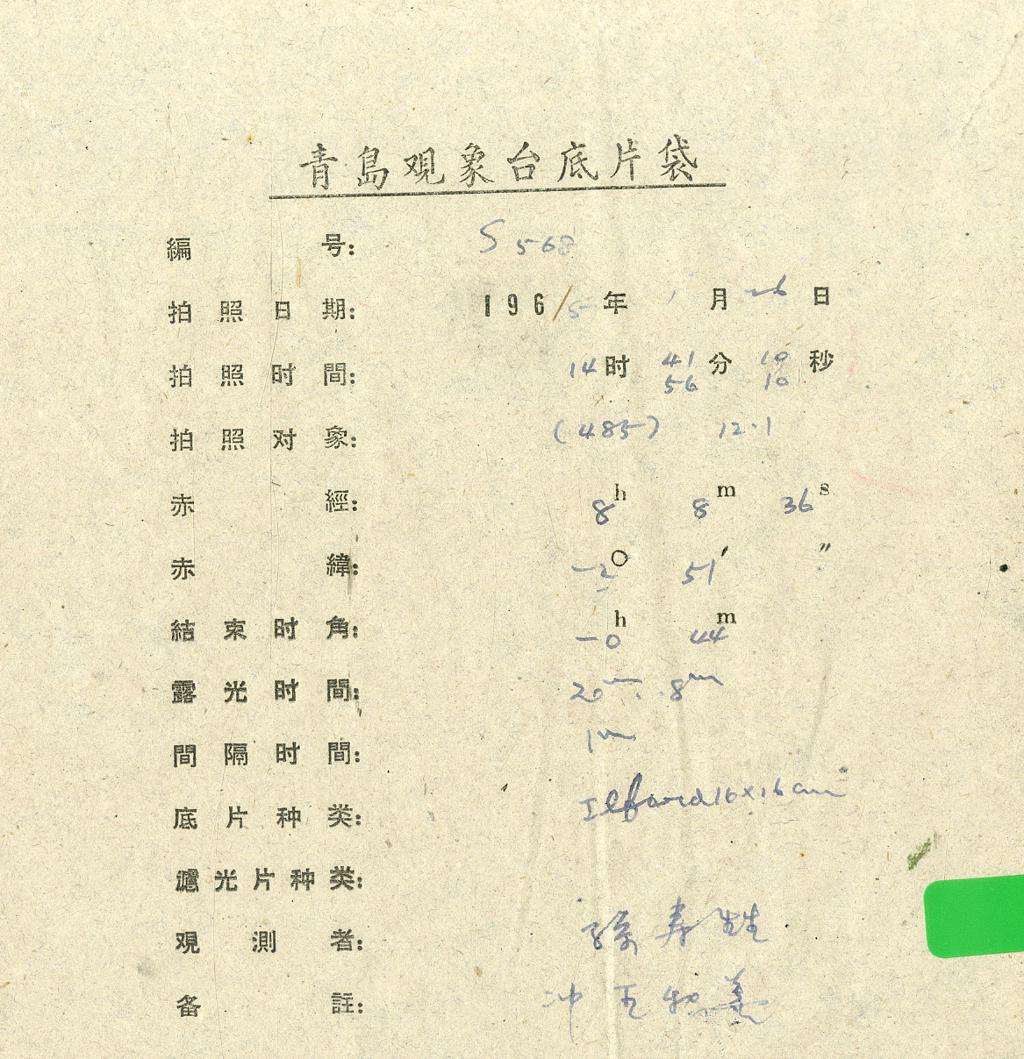 青島观象台底片袋
編号: S 568
拍照日期: 196/5年 1月26日
拍照时間: 14时 41分 10秒
56 10
拍照对象: (485) 12.1
赤經: 8h 8m 36s
赤緯: -2° 51′ ″
結束时角: -0h 44m
露光时間: 20m. 8m
間隔时間: 1m
底片种类: Ilford 16×16cm
濾光片种类:
观測者: 孫寿
备註: 冲